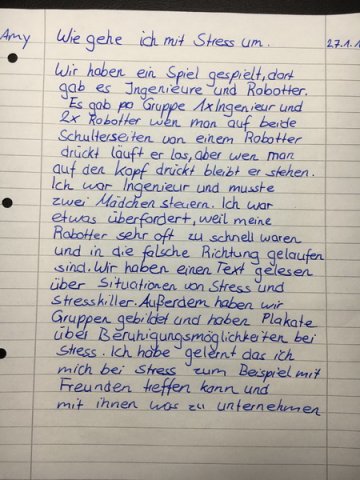 Amy Wie gehe ich mit Stress um. 27.1.1
Wir haben ein Spiel gespielt, dort
gab es Ingenieure und Robotter.
Es gab po Gruppe 1x Ingenieur und
2x Robotter wen man auf beide
Schulterseiten von einem Robotter
drückt läuft er los, aber wen man
auf den Kopf drückt bleibt er stehen.
Ich war Ingenieur und musste
zwei Mädchen steuern. Ich war
etwas überfordert, weil meine
Robotter sehr oft zu schnell waren
und in die falsche Richtung gelaufen
sind. Wir haben einen Text gelesen
über Situationen von Stress und
Stresskiller. Außerdem haben wir
Gruppen gebildet und haben Plakate
über Beruhigungsmöglichkeiten bei
Stress. Ich habe gelernt das ich
mich bei Stress zum Beispiel mit
Freunden treffen kann und
mit ihnen was zu unternehmen